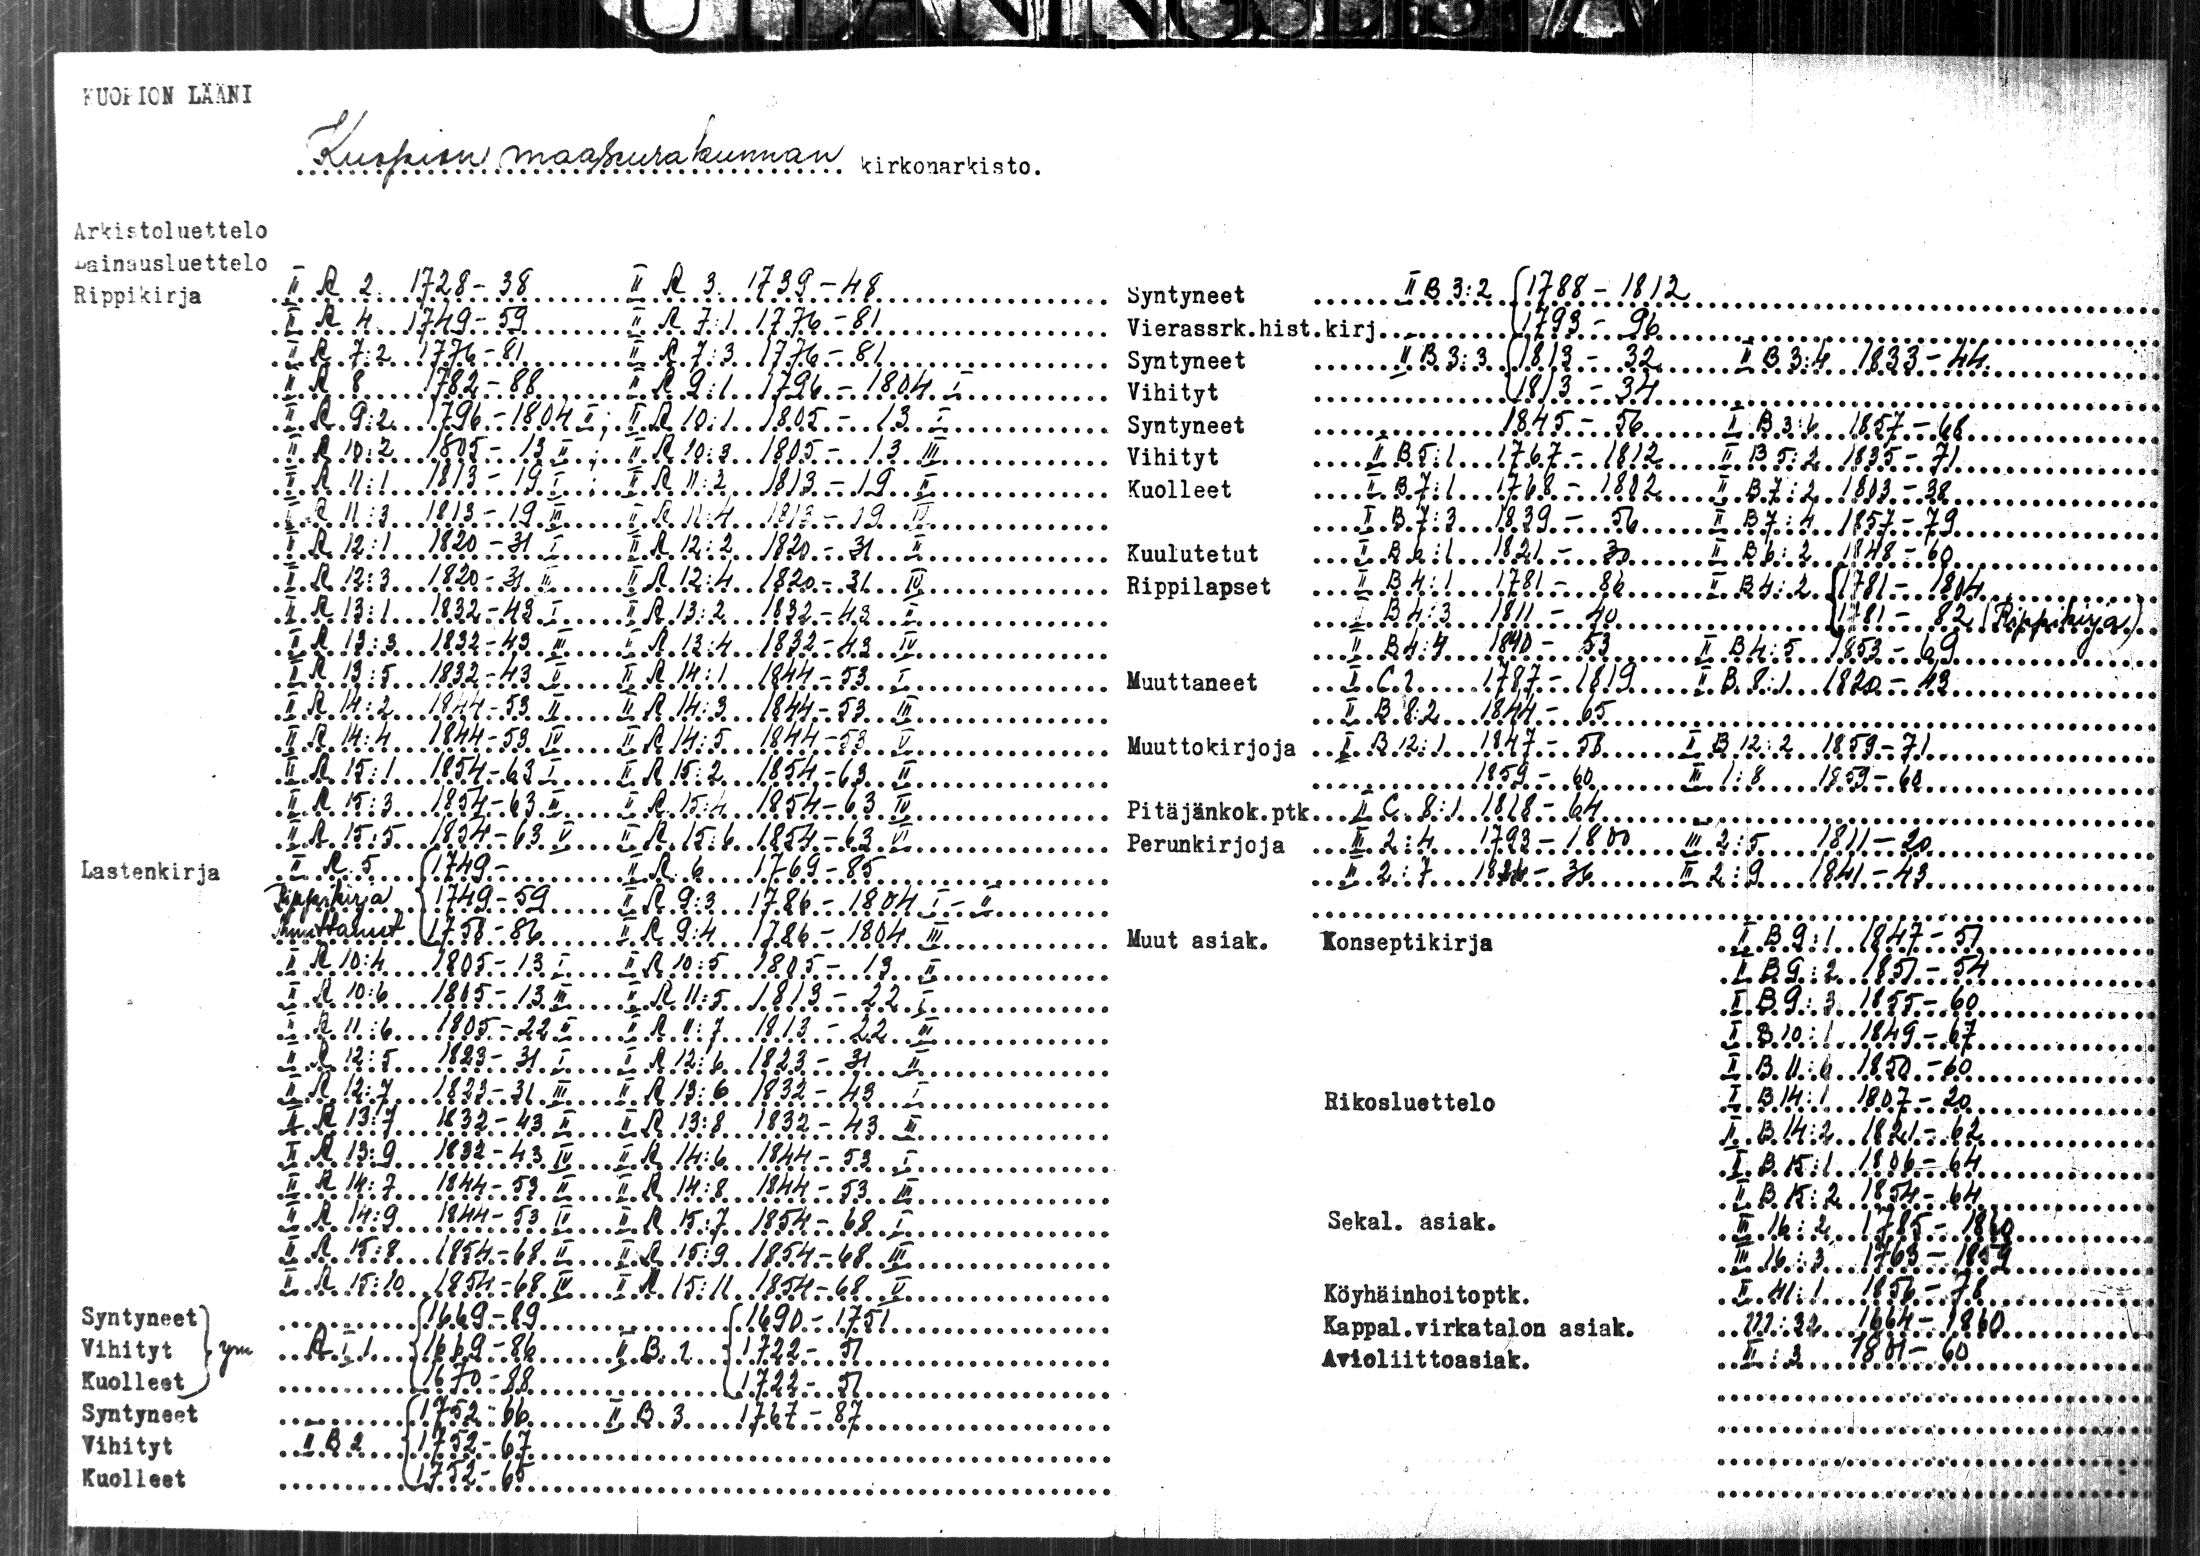 UTLÅNINGSLISTA
KUOPION LÄÄNI
Kuopion maaseurakunnan kirkonarkisto.
Arkistoluettelo
Lainausluettelo
Rippikirja II A 2. 1728-38 II A 3. 1739-48
II A 4 1749-59 II A 7:1 1776-81
II A 7:2 1776-81 II A 7:3 1776-81
II A 8 1782-88 II A 9:1 1796-1804 I
II A 9:2 1796-1804 II; II A 10:1 1805-13 I
II A 10:2 1805-13 II; II A 10:3 1805-13 III
II A 11:1 1813-19 I; II A 11:2 1813-19 II
II A 11:3 1813-19 III II A 11:4 1813-19 IV
II A 12:1 1820-31 I II A 12:2 1820-31 II
II A 12:3 1820-31 III II A 12:4 1820-31 IV
II A 13:1 1832-43 I II A 13:2 1832-43 II
II A 13:3 1832-43 III II A 13:4 1832-43 IV
II A 13:5 1832-43 V II A 14:1 1844-53 I
II A 14:2 1844-53 II II A 14:3 1844-53 III
II A 14:4 1844-53 IV II A 14:5 1844-53 V
II A 15:1 1854-63 I II A 15:2 1854-63 II
II A 15:3 1854-63 III II A 15:4 1854-63 IV
II A 15:5 1854-63 V II A 15:6 1854-63 VI
Lastenkirja II A 5 1749- II A 6 1769-85
Rippikirja 1749-59 II A 9:3 1786-1804 I-II
Muuttanut 1758-86 II A 9:4 1786-1804 III
II A 10:4 1805-13 I II A 10:5 1805-13 II
II A 10:6 1805-13 III II A 11:5 1813-22 I
II A 11:6 1805-22 II II A 11:7 1813-22 III
II A 12:5 1823-31 I II A 12:6 1823-31 II
II A 12:7 1823-31 III II A 13:6 1832-43 I
II A 13:7 1832-43 II II A 13:8 1832-43 III
II A 13:9 1832-43 IV II A 14:6 1844-53 I
II A 14:7 1844-53 II II A 14:8 1844-53 III
II A 14:9 1844-53 IV II A 15:7 1854-68 I
II A 15:8 1854-68 II II A 15:9 1854-68 III
II A 15:10 1854-68 IV II A 15:11 1854-68 V
Syntyneet 1669-89 1690-1751
Vihityt ym A I 1 1669-86 II B 1 1722-51
Kuolleet 1670-88 1722-51
Syntyneet 1752-66 II B 3 1767-87
Vihityt II B 2 1752-67
Kuolleet 1752-65
Syntyneet II B 3:2 1788-1812
Vierassrk.hist.kirj. 1793-96
Syntyneet II B 3:3 1813-32 II B 3:4 1833-44
Vihityt 1813-34
Syntyneet 1845-56 II B 3:6 1857-68
Vihityt II B 5:1 1767-1812 II B 5:2 1835-71
Kuolleet II B 7:1 1768-1802 II B 7:2 1803-38
II B 7:3 1839-56 II B 7:4 1857-79
Kuulutetut II B 6:1 1821-30 II B 6:2 1848-60
Rippilapset II B 4:1 1781-86 II B 4:2 1781-1804
II B 4:3 1811-40 1781-82 (Rippikirja)
II B 4:4 1840-53 II B 4:5 1853-69
Muuttaneet II C 1 1787-1819 II B 8:1 1820-43
II B 8:2 1844-65
Muuttokirjoja II B 12:1 1847-58 II B 12:2 1859-71
1859-60 III 1:8 1859-60
Pitäjänkok.ptk II C 8:1 1818-64
Perunkirjoja III 2:4 1793-1800 III 2:5 1811-20
III 2:7 -36 III 2:9 1841-43
Muut asiak. Konseptikirja II B 9:1 1847-51
II B 9:2 1851-54
II B 9:3 1855-60
II B 10:1 1849-67
II B 11:6 1850-60
Rikosluettelo II B 14:1 1807-20
II B 14:2 1821-62
II B 15:1 1806-64
II B 15:2 1854-64
Sekal. asiak. III 16:2 1785-1860
III 16:3 1763-1859
Köyhäinhoitoptk. II 41:1 1856-78
Kappal.virkatalon asiak. :32 1664-1860
Avioliittoasiak. III:3 1801-60